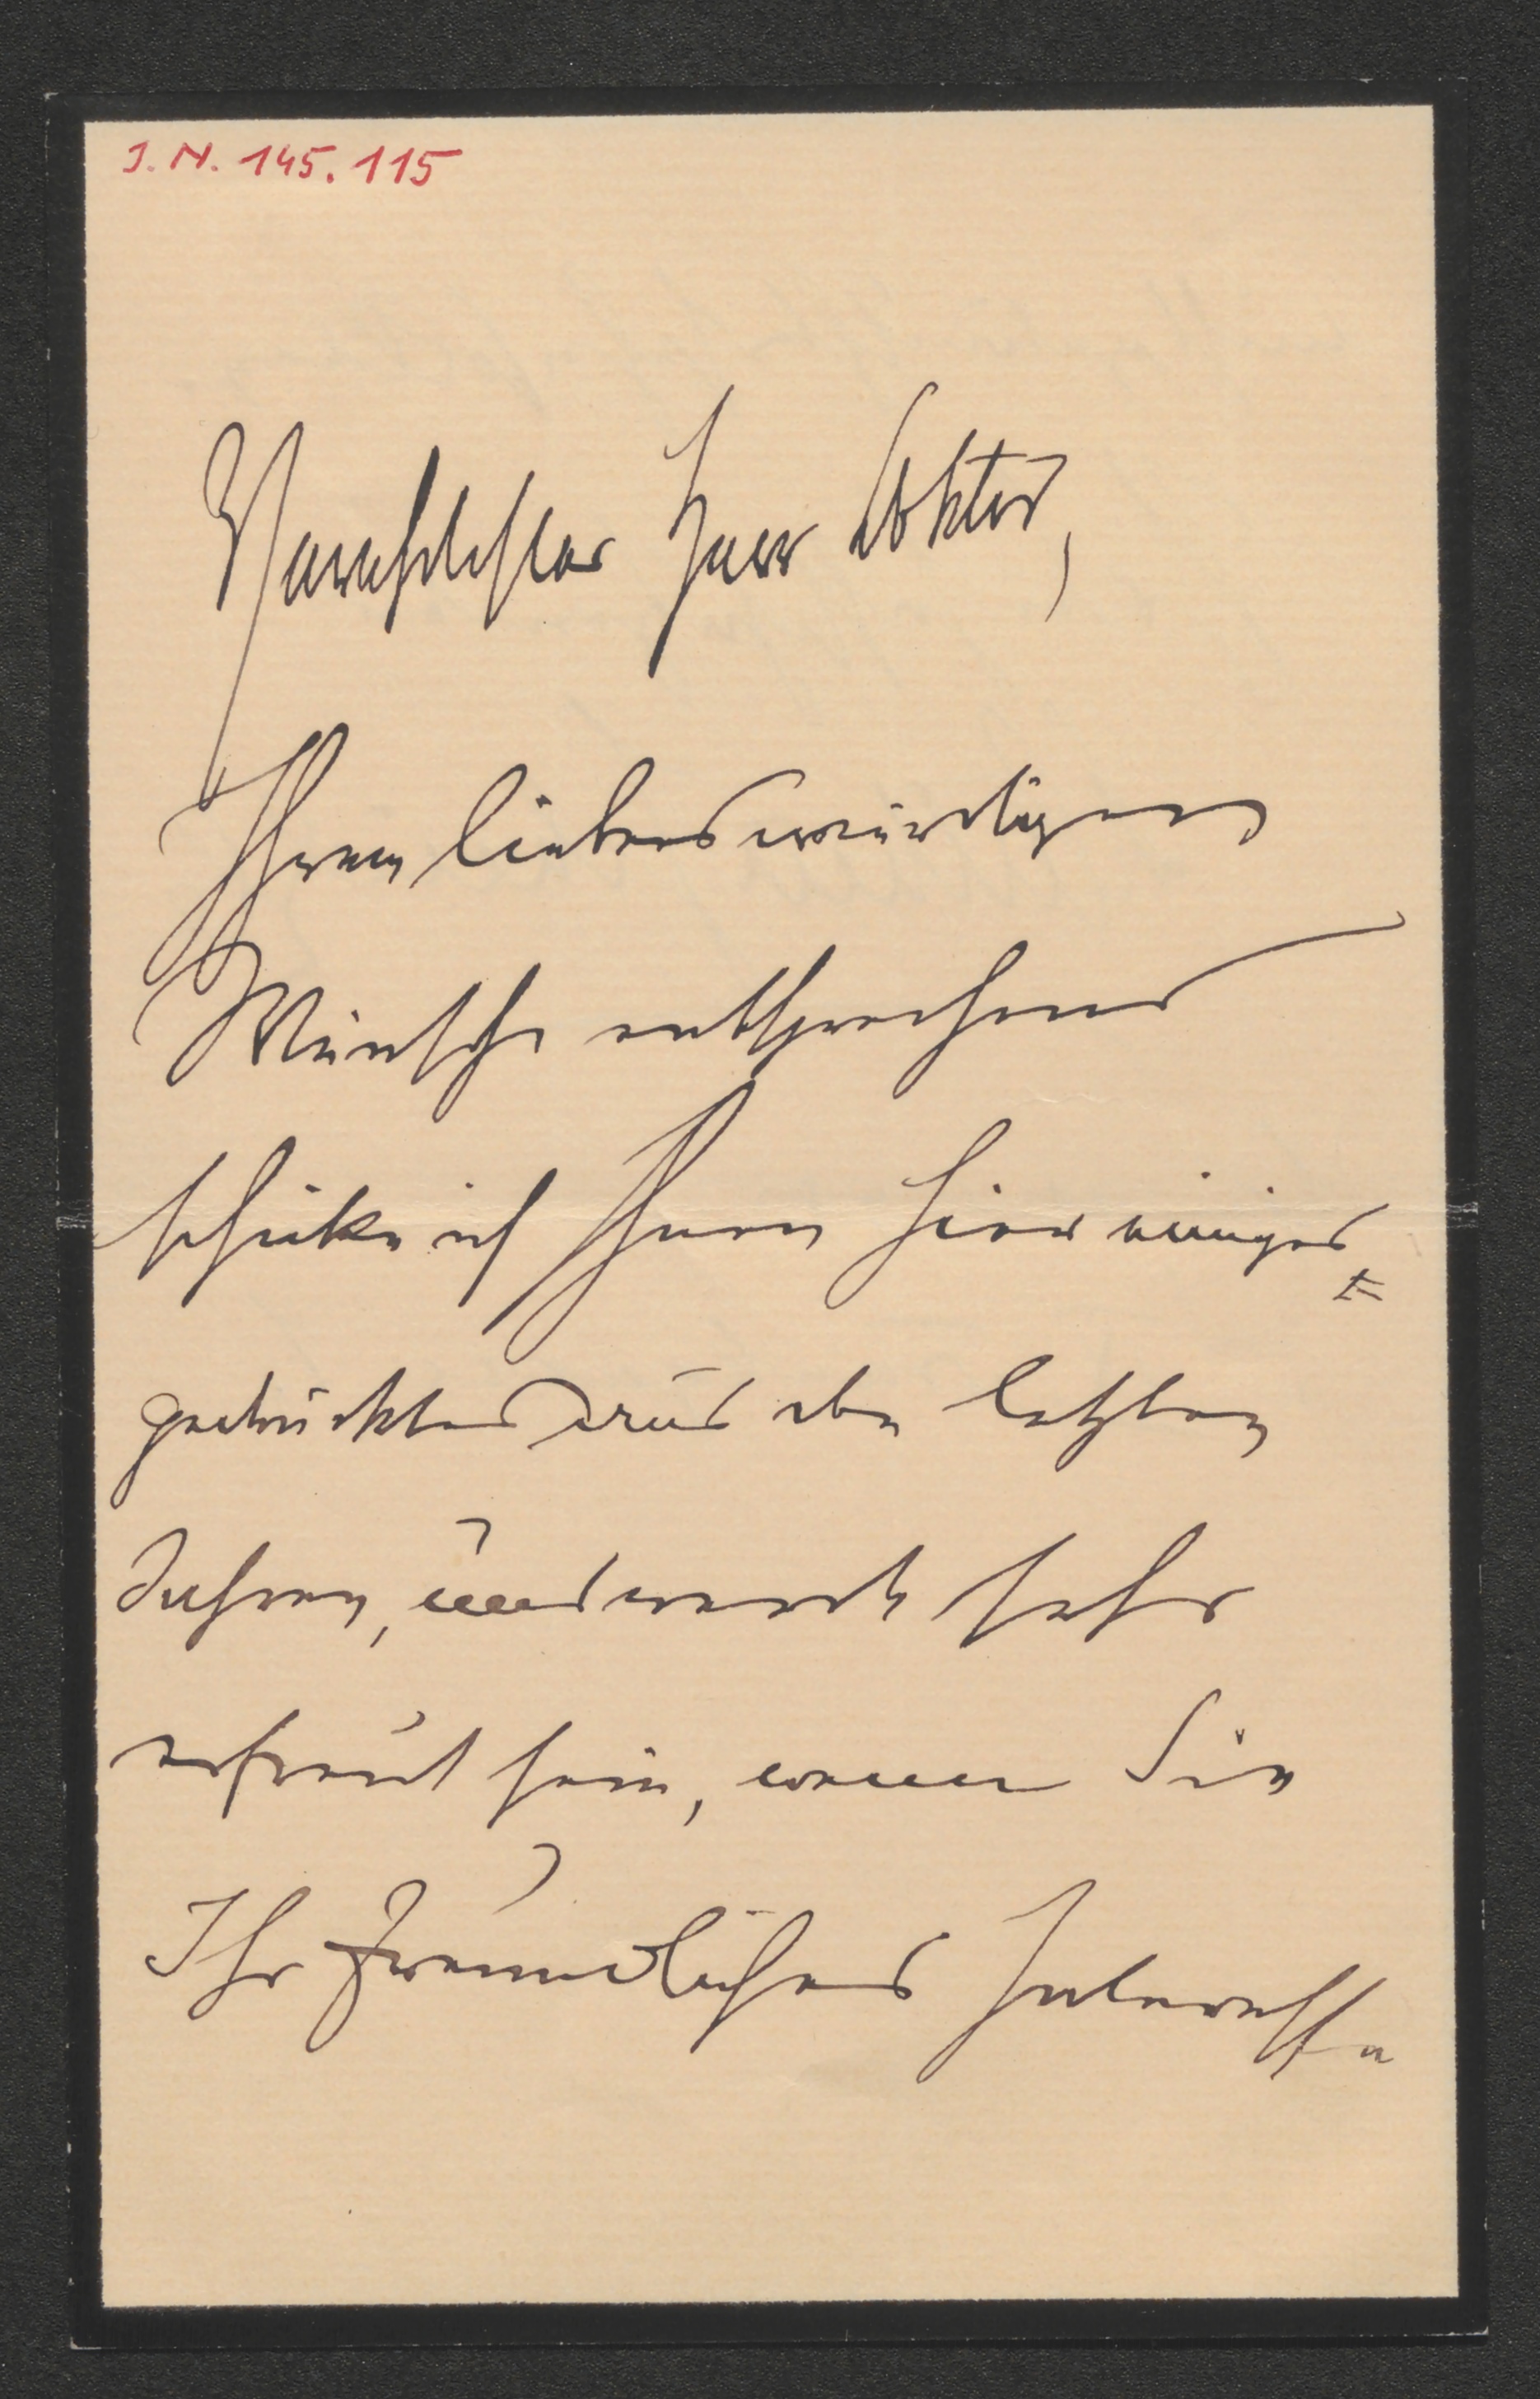 J. N. 145.115
Verehrtester Herr Doktor,
Ihrem liebenswürdigen
Wunsche entsprechend
schicke ich Ihnen hier einiges
gedrucktes aus den letzten
Jahren, und werde sehr
erfreut sein, wenn Sie
Ihr freundliches Interesse